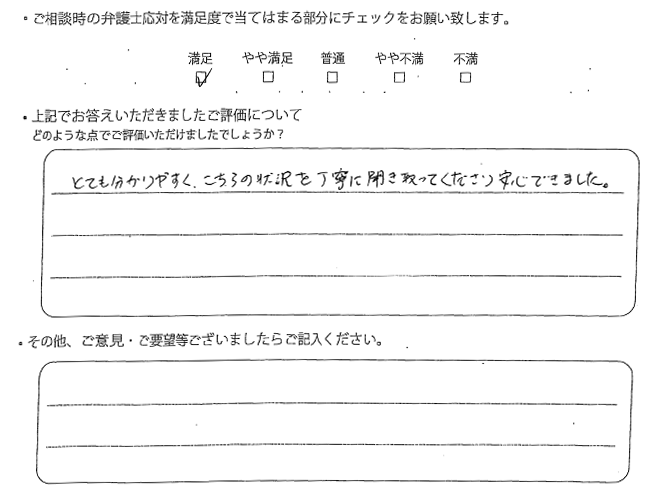 ・ご相談時の弁護士応対を満足度で当てはまる部分にチェックをお願い致します。
満足 やや満足 普通 やや不満 不満
☑ □ □ □ □
・上記でお答えいただきましたご評価について
どのような点でご評価いただけましたでしょうか？
とても分かりやすく、こちらの状況を丁寧に聞き取ってくださり安心できました。
・その他、ご意見・ご要望等ございましたらご記入ください。